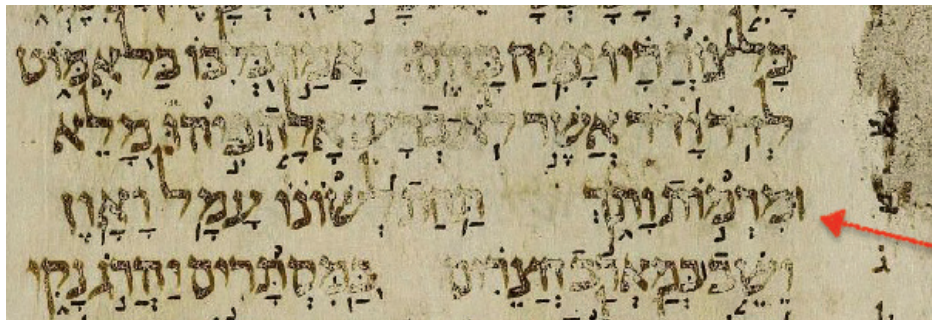 כָּל צוֹרְרָיו יָפִיחַ בָּהֶם אָמַר בְּלִבּוֹ בַּל אֶמּוֹט
לְדֹר וָדֹר אֲשֶׁר לֹא בְרָע אָלָה פִּיהוּ מָלֵא
וּמִרְמוֹת וָתֹךְ תַּחַת לְשׁוֹנוֹ עָמָל וָאָוֶן
יֵשֵׁב בְּמַאְרַב חֲצֵרִים בַּמִּסְתָּרִים יַהֲרֹג נָקִי